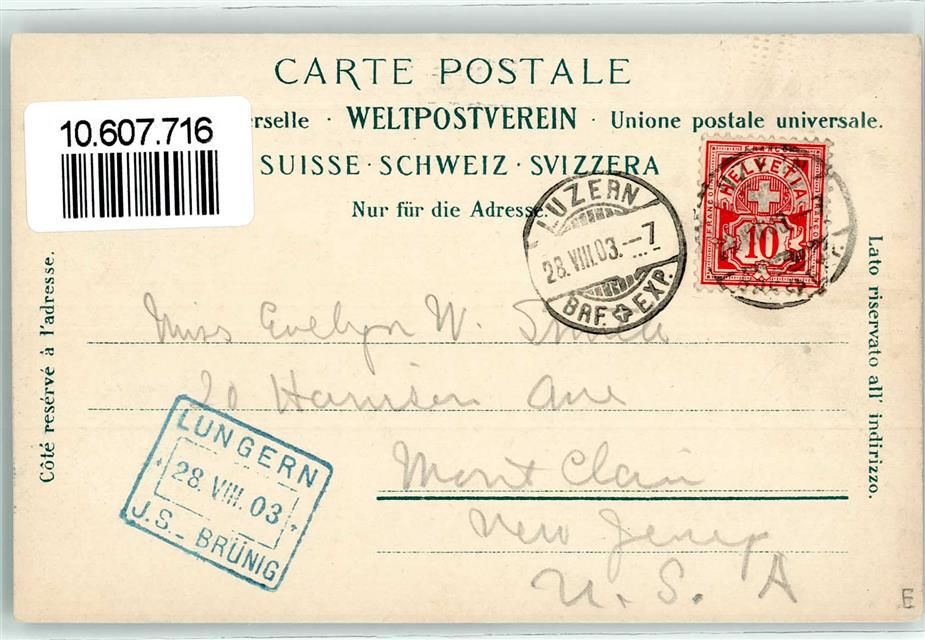 CARTE POSTALE
10.607.716
erselle · WELTPOSTVEREIN · Unione postale universale.
SUISSE · SCHWEIZ · SVIZZERA
Nur für die Adresse.
HELVETIA
FRANCO
FRANCO
10
LUZERN
28.VIII.03.–7
BRF. EXP.
Côté reservé à l'adresse.
Lato riservato all' indirizzo.
Miss Evelyn W.
20 Harrison Ave
Mont Clair
New Jersey
U. S. A
LUNGERN
28. VIII. 03
J.S.- BRÜNIG
E